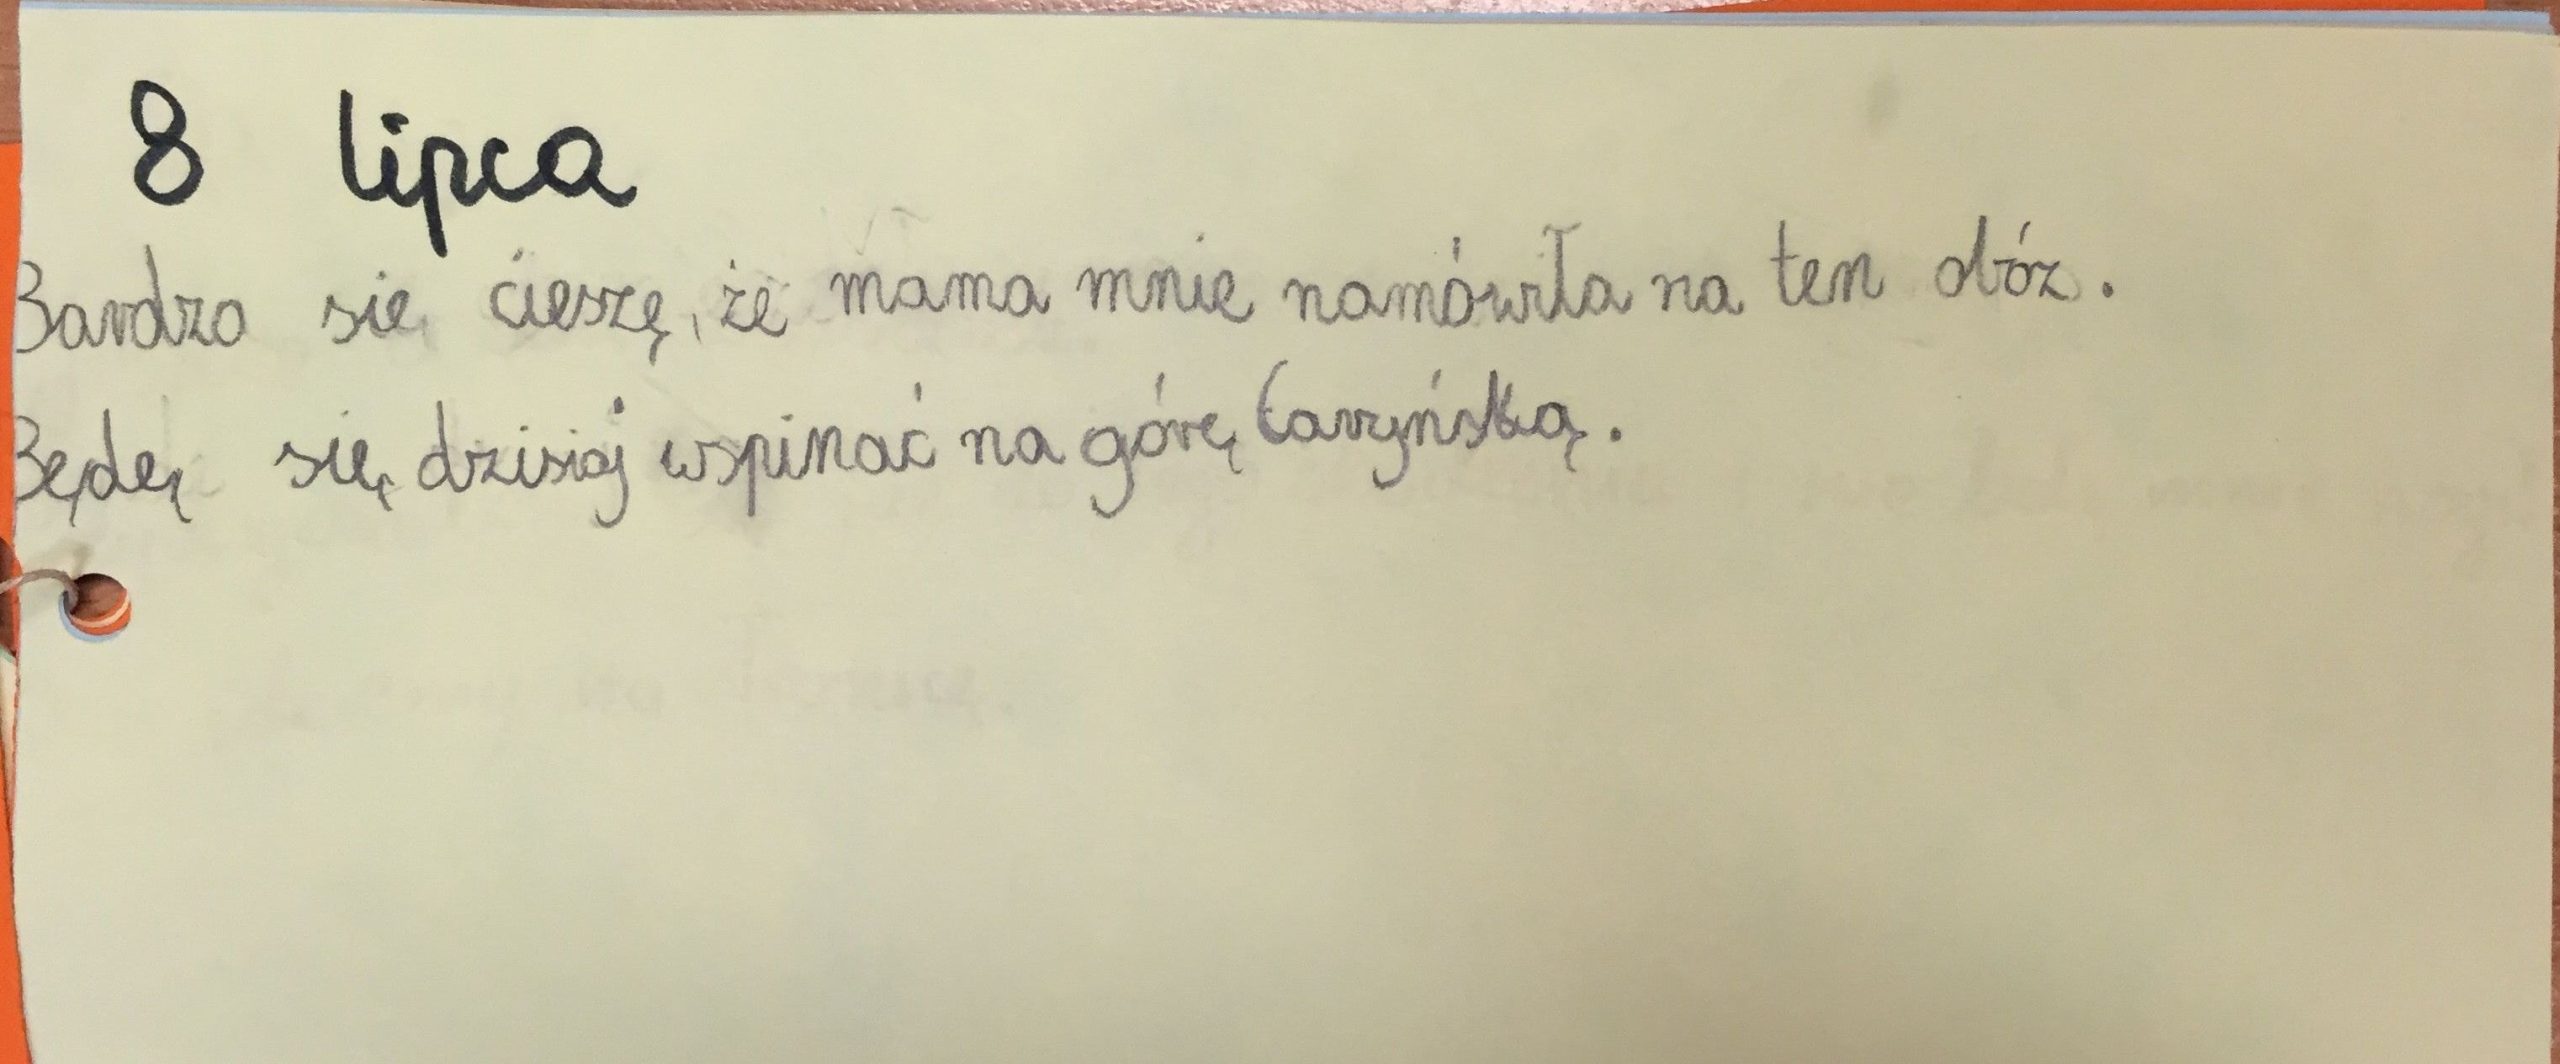 8 lipca
Bardzo się cieszę, że mama mnie namówiła na ten obóz.
Będę się dzisiaj wspinać na górę